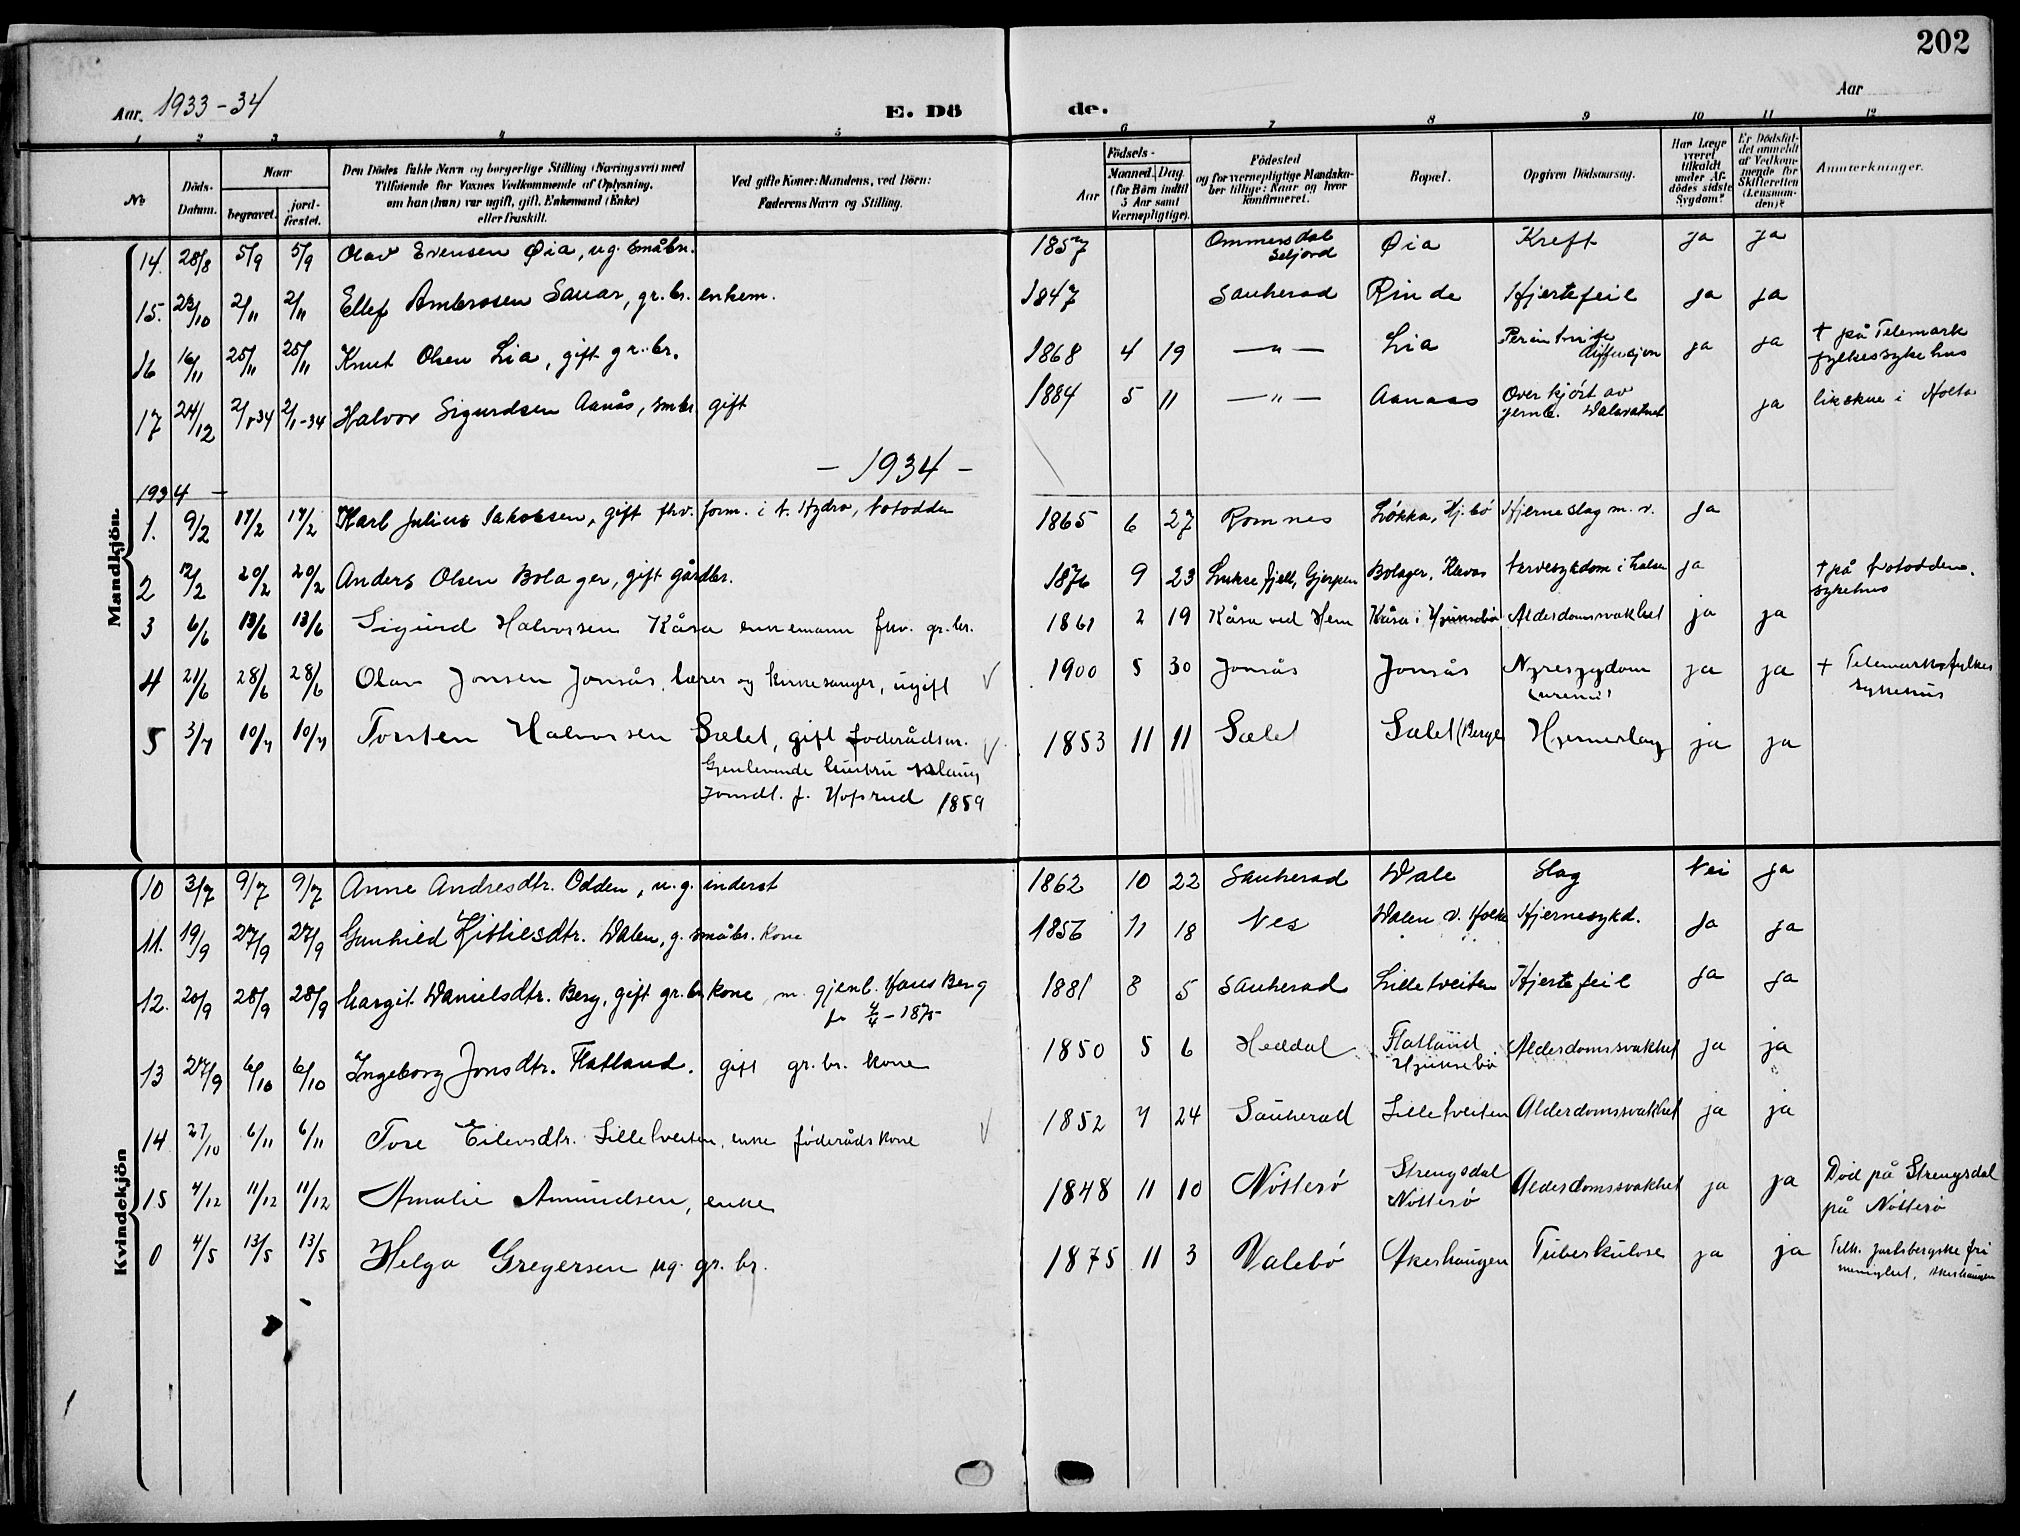 202
Aar. 1933-34 E. Dö de. Aar
1 2 3 4 5 6 7 8 9 10 11 12
No
Döds-Datum.
Naar
begravet.
jord-fæstet.
Den Dödes fulde Navn og borgerlige Stilling (Næringsvei) med
Tilföiende for Voxnes Vedkommende af Oplysning,
om han (hun) var ugift, gift, Enkemand (Enke)
eller fraskilt.
Ved gifte Koner: Mandens, ved Börn:
Faderens Navn og Stilling.
Födsels-
Aar
Maaned. Dag.
(for Börn indtil
5 Aar samt
Værnepligtige).
Födested
og for værnepligtige Mandska-
ber tillige: Naar og hvor
konfirmeret.
Bopæl.
Opgiven Dödsaarsag.
Har Læge
været
tilkaldt
under Af-
dödes sidste
Sygdom?
Er Dödsfal-
det anmeldt
af Vedkom-
mende for
Skifteretten
(Lensman-
den)?
Anmærkninger.
Mandkjön
14. 28/8 5/9 5/9 Olav Evensen Øia, ug. småbr. 1857 Ommersdal Seljord Øia Kreft ja ja
15. 23/10 2/11 2/11 Ellef Ambrosen Sauar, gr.br. enkem. 1847 Sauherad Rinde Hjertefeil ja ja
16 16/11 25/11 25/11 Knut Olsen Lia, gift gr.br. 1868 4 19 —"— Lia ja ja † på Telemark fylkessykehus
17 24/12 2/1-34 2/1-34 Halvor Sigurdsen Aanås, småbr. gift 1884 5 11 —"— Aanaas Overkjört av jernb. ja likskue i Holta
- 1934 -
1934 -
1. 9/2 17/2 17/2 Karl Julius Jakobsen, gift fhv. form. i N. Hydro, Notodden 1865 6 27 Romnes Løkka, Hj.bø Hjerneslag m.v. ja
2 12/2 20/2 20/2 Anders Olsen Bolager, gift gårdbr. 1876 9 23 Luksefjell, Gjerpen Bolager, i halsen ja † på Notodden sykehus
3 6/6 13/6 13/6 Sigurd Halvorsen Kåsa enkemann fhv. gr.br. 1861 2 19 Kåsa ved Hem Kåsa i Hjuksebø Alderdomssvakhet ja ja
4 21/6 28/6 28/6 Olav Jonsen Jonsås, lærer og kirkesanger, ugift 1900 5 30 Jonsås Jonsås Nyresygdom (uremi) ja ja † Telemark fylkes sykehus
5 3/7 10/7 10/7 Torsten Halvorsen Sælet, gift föderådsm. 1853 11 11 Sælet Sælet (Berge Hjerneslag ja ja
Gjenlevende hustru Aslaug
Jonsdt. f. Hofsrud 1859
Kvindekjön
10 3/7 9/7 9/7 Anne Andresdtr. Odden, u.g. inderst 1862 10 22 Sauherad Dale Slag Nei ja
11. 19/9 27/9 27/9 Gunhild Kittilsdtr. Dalen, g. småbr. kone 1856 11 18 Nes Dalen v. Holte Hjernesykd. ja ja
12. 20/9 28/9 28/9 Margit Danielsdtr. Berg, gift gr.br. kone, m. gjenl. Hans Berg 1881 8 5 Sauherad Lilletveiten Hjertefeil ja ja
13 27/9 6/10 6/10 Ingeborg Jonsdtr. Flatland. gift gr.br. kone 1850 5 6 Heddal Flatland Hjuksebø Alderdomssvakhet ja ja
14 27/10 6/11 6/11 Tose Eilevsdtr. Lilletveiten, enke föderådskone 1852 7 24 Sauherad Lilletveiten Alderdomssvakhet ja ja
15 4/12 11/12 11/12 Amalie Amundsen, enke 1848 11 10 Nötterö Strengsdal Nötterö Alderdomssvakhet ja ja Död på Strengsdal på Nötterö
0 4/5 13/5 13/5 Helga Gregersen ug. gr.br. 1875 11 3 Valebö Akeshaugen Tuberkulose ja ja Tilh. jarlsbergske fri menighet,